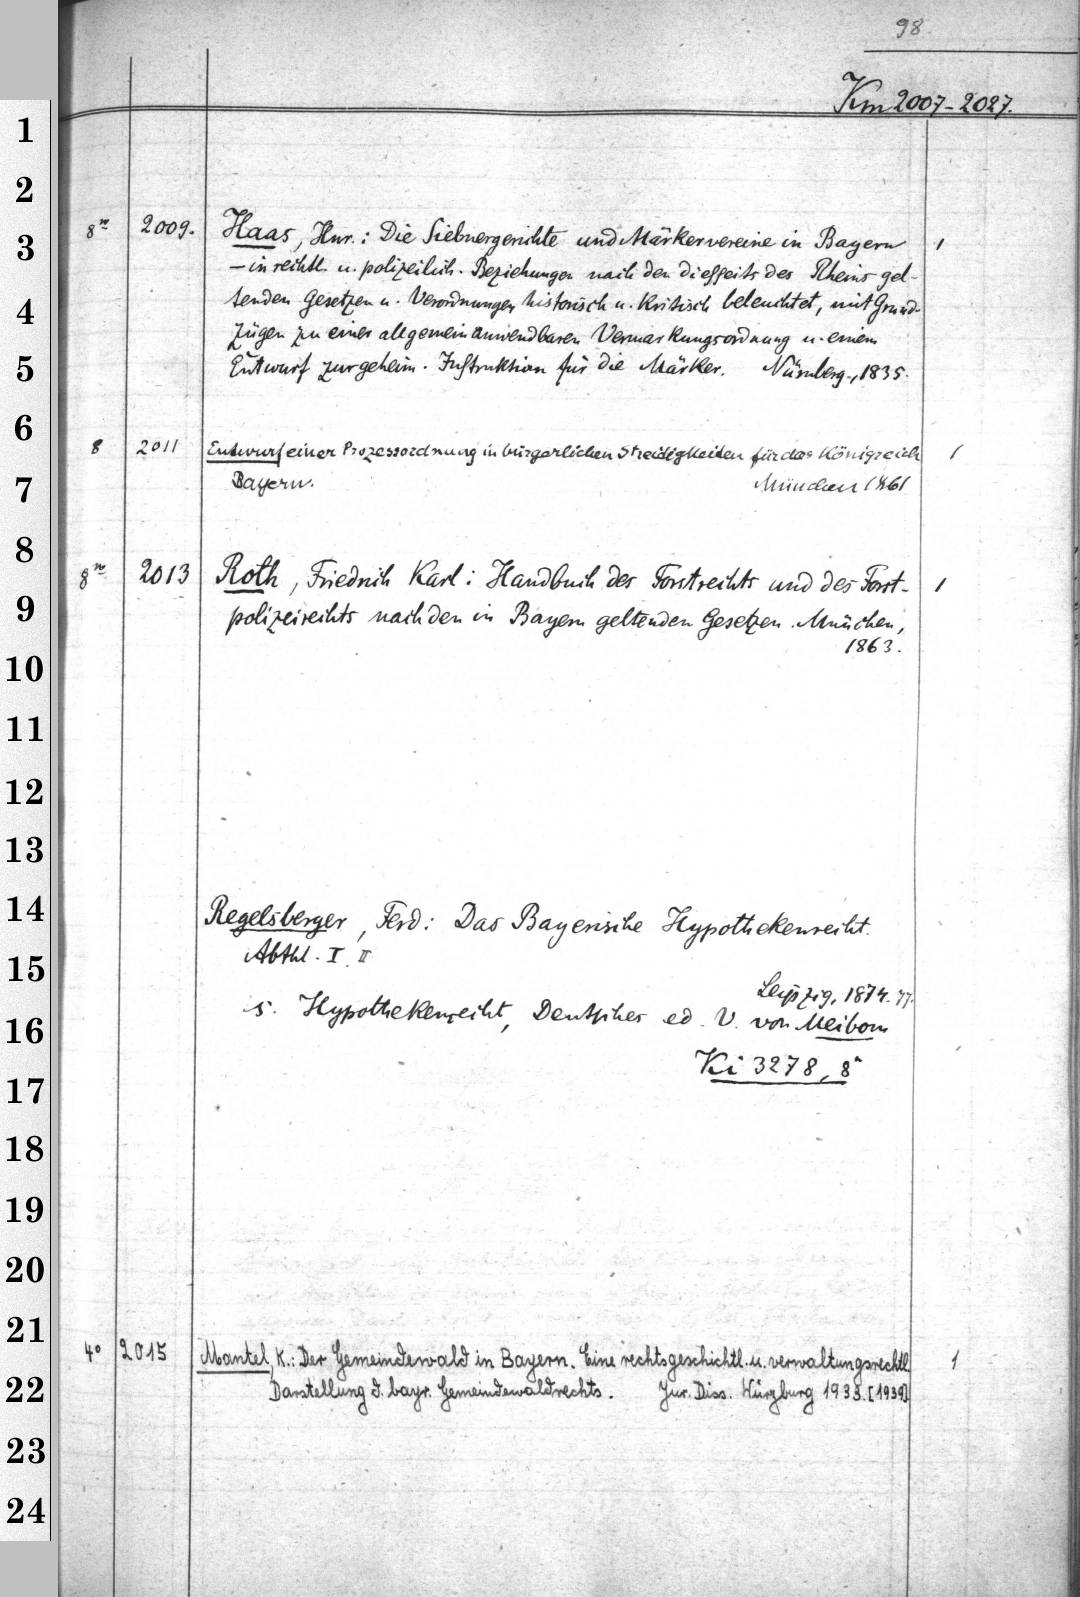 98.
Km 2007-2027.
1
2
8º 2009. Haas, Hnr.: Die Siebnergerichte und Märkervereine in Bayern 1
3
— in rechtl. u. polizeilich. Beziehungen nach den diesseits des Rheins gel-
4
tenden Gesetzen u. Verordnungen historisch u. kritisch beleuchtet, mit Grund-
zügen zu einer allgemein anwendbaren Vermarkungsordnung u. einem
5
Entwurf zur geheim. Instruktion für die Märker. Nürnberg, 1835.
6
8 2011 Entwurf einer Prozessordnung in bürgerlichen Streitigkeiten für das Königreich 1
7
Bayern. München 1861
8
8º 2013 Roth, Friedrich Karl: Handbuch des Forstrechts und des Forst- 1
9
polizeirechts nach den in Bayern geltenden Gesetzen. München,
1863.
10
11
12
13
14
Regelsberger, Ferd: Das Bayerische Hypothekenrecht.
15
Abthl. I. II
Leipzig, 1874. 77.
16
s. Hypothekenrecht, Deutsches ed. V. von Meibom
17
Ki 3278, 8º
18
19
20
21
4º 2015 Mantel, K.: Der Gemeindewald in Bayern. Eine rechtsgeschichtl. u. verwaltungsrechtl. 1
22
Darstellung d. bayr. Gemeindewaldrechts. Jur. Diss. Würzburg 1938. [1939]
23
24